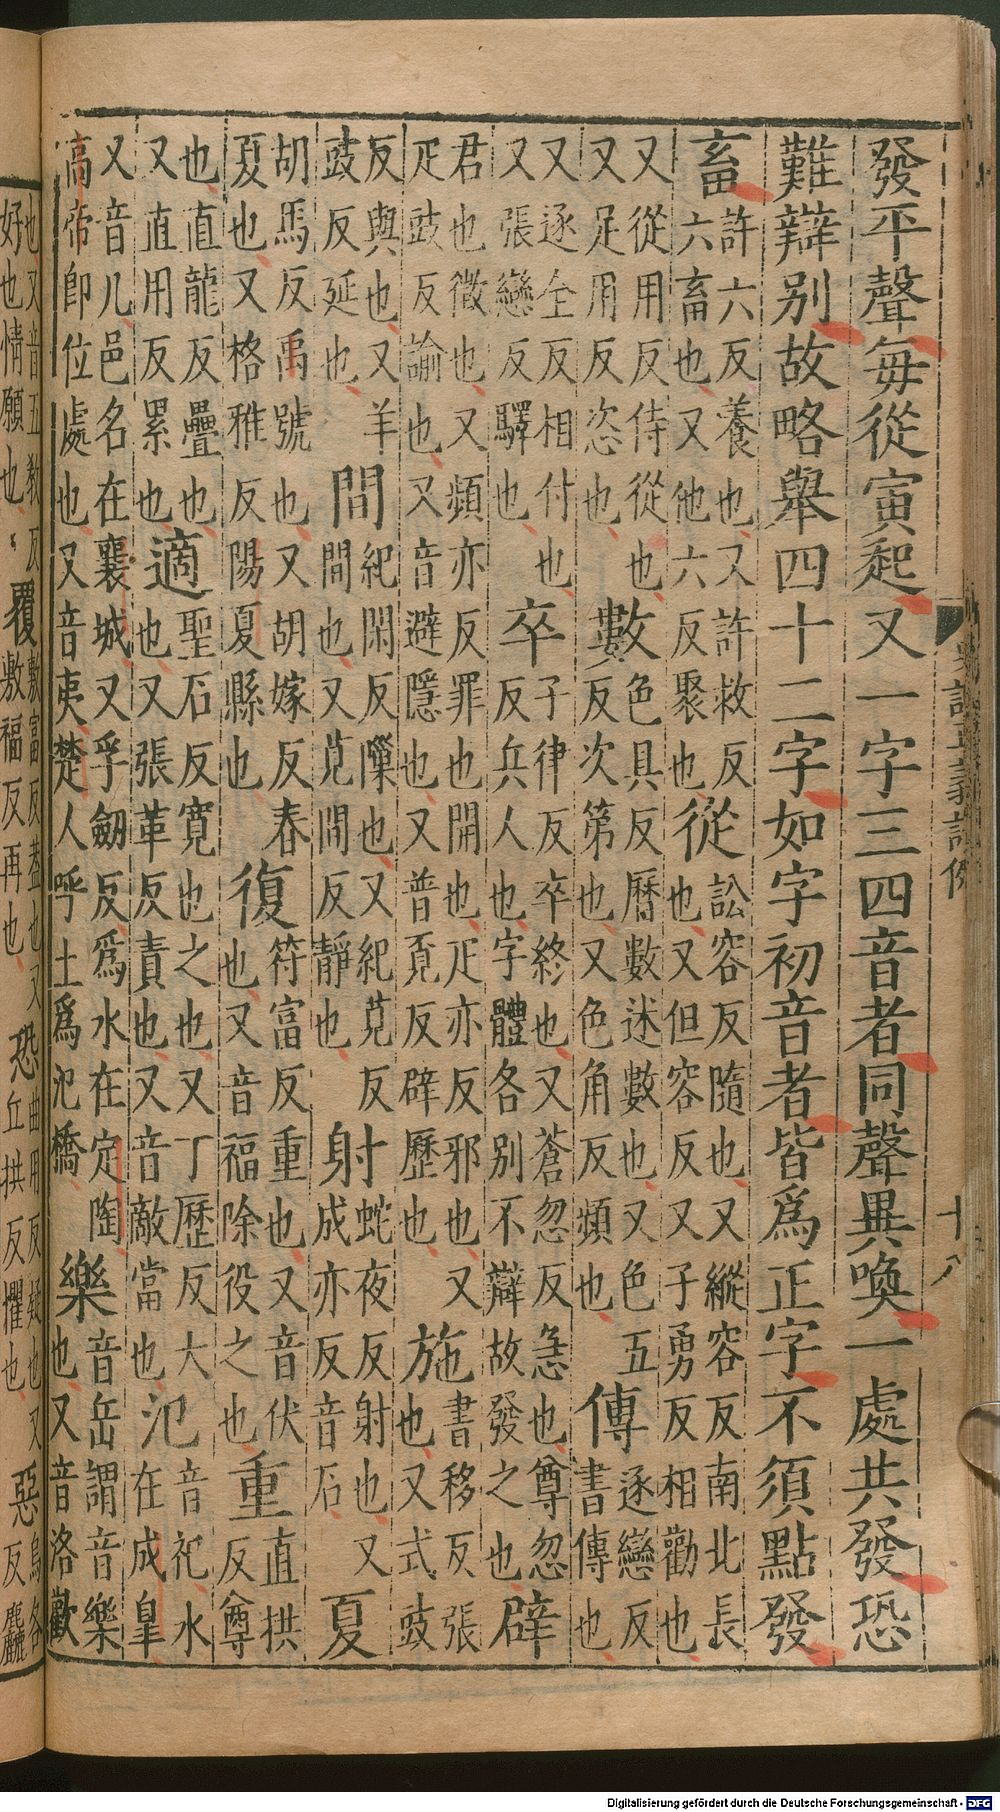 發平聲每從寅起又一字三四音者同聲異喚一處共發恐
難辯别故略舉四十二字如字初音者皆爲正字不須點發
畜
許六反養也又許救反
六畜也又他六反聚也
從
訟容反隨也又縱容反南北長
也又但容反又子勇反相勸也
又從用反侍從也
又足用反恣也
數
色具反曆數述數也又色五
反次第也又色角反頻也
傳
逐戀反
書傳也
又逐全反相付也
又張戀反驛也
卒
子律反卒終也又蒼忽反急也尊忽
反兵人也字體各别不辯故發之也
辟
君也徵也又頻亦反罪也開也疋亦反邪也又
疋豉反諭也又音避隱也又普覓反辟歷也
施
書移反張
也又式豉
反與也又羊
豉反延也
間
紀閑反隟也又紀莧反
間也又莧間反靜也
射
蛇夜反射也又
成亦反音石
夏
胡馬反禹號也又胡嫁反春
夏也又格雅反陽夏縣也
復
符富反重也又音伏
也又音福除役之也
重
直拱
反尊
也直龍反疊也
又直用反累也
適
聖石反寬也之也又丁歷反大
也又張革反責也又音敵當也
氾
音祀水
在成皐
又音凡邑名在襄城又孚劒反爲水在定陶
高帝即位處也又音夷楚人呼土爲氾橋
樂
音岳謂音樂
也又音洛歡
也又音五教反
好也情願也
覆
敷富反葢也又
敷福反再也
恐
曲用反疑也又
丘拱反懼也
惡
烏各
反麤
十八
Digitalisierung gefördert durch die Deutsche Forschungsgemeinschaft - DFG